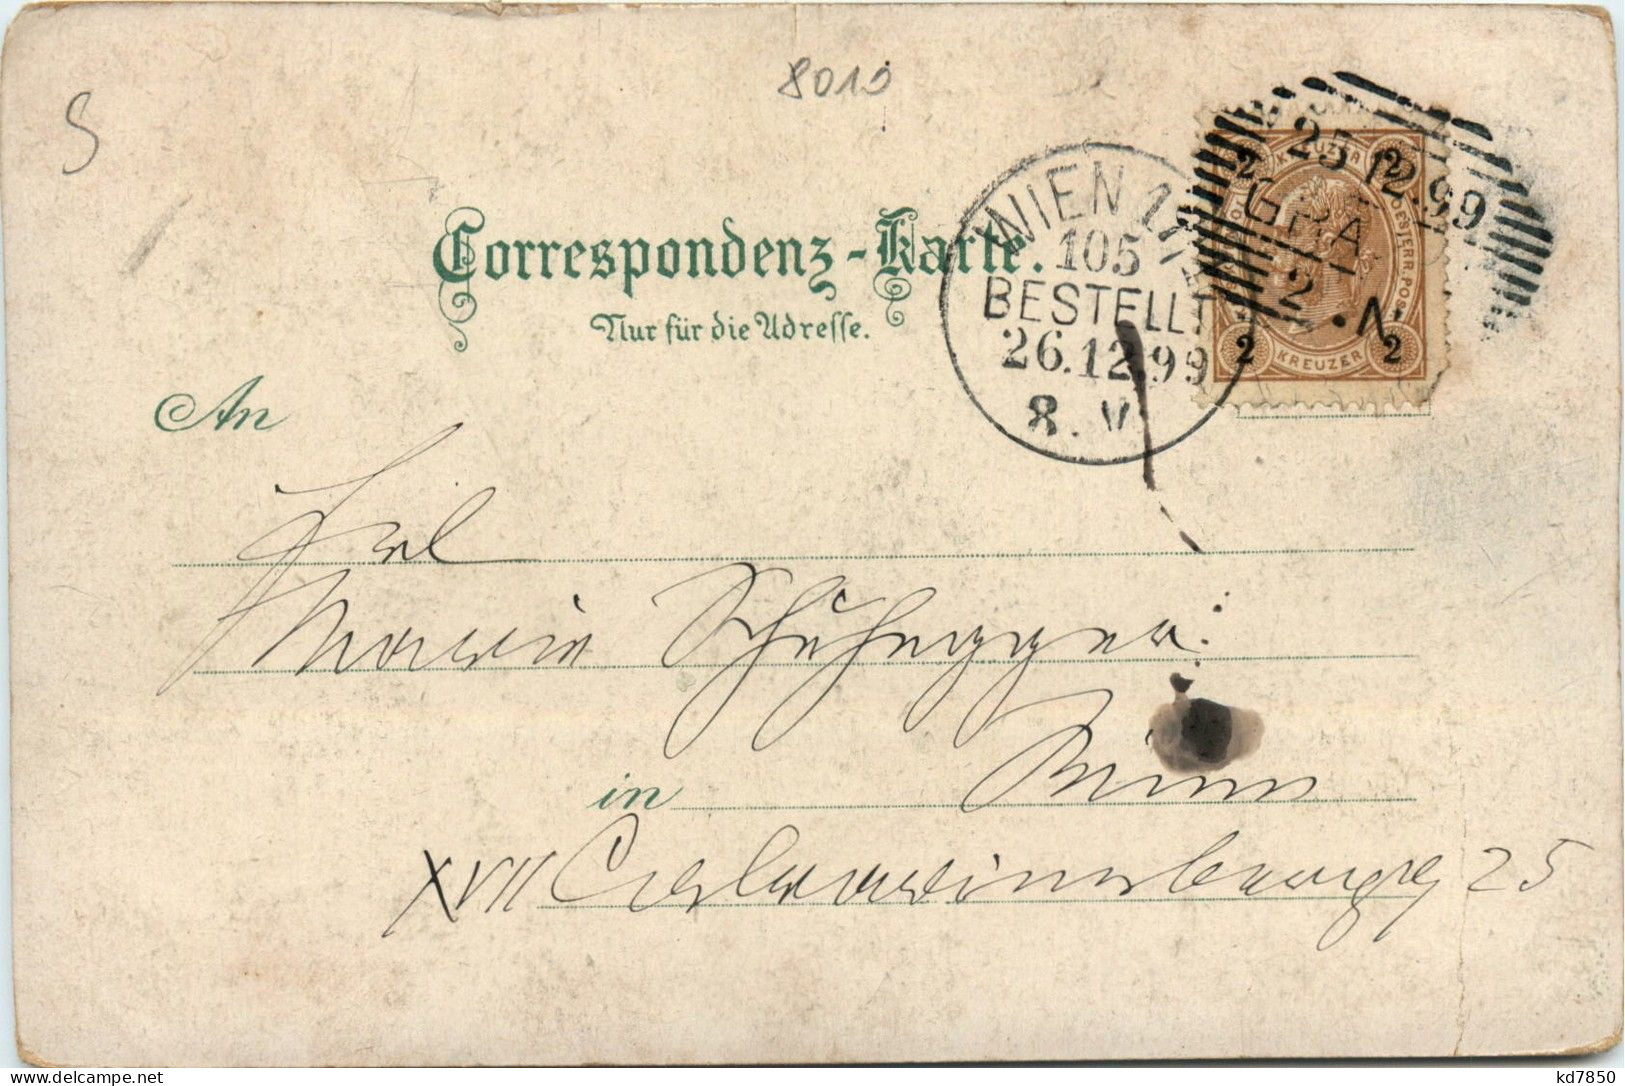 8010
S
Correspondenz-Karte.
Nur für die Adresse.
WIEN 1/1
105
BESTELLT
26.12.99
8. V
25 12.99
GRA
2 • N
2 KREUZER 2
OESTERR. POST
2 KREUZER 2
An
Frl
Marie
in Wien
XVII 25
kd7850